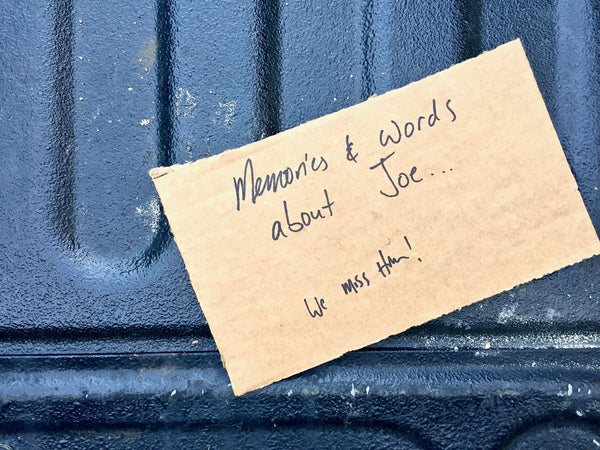 Memories & words
about Joe...
We miss Him!